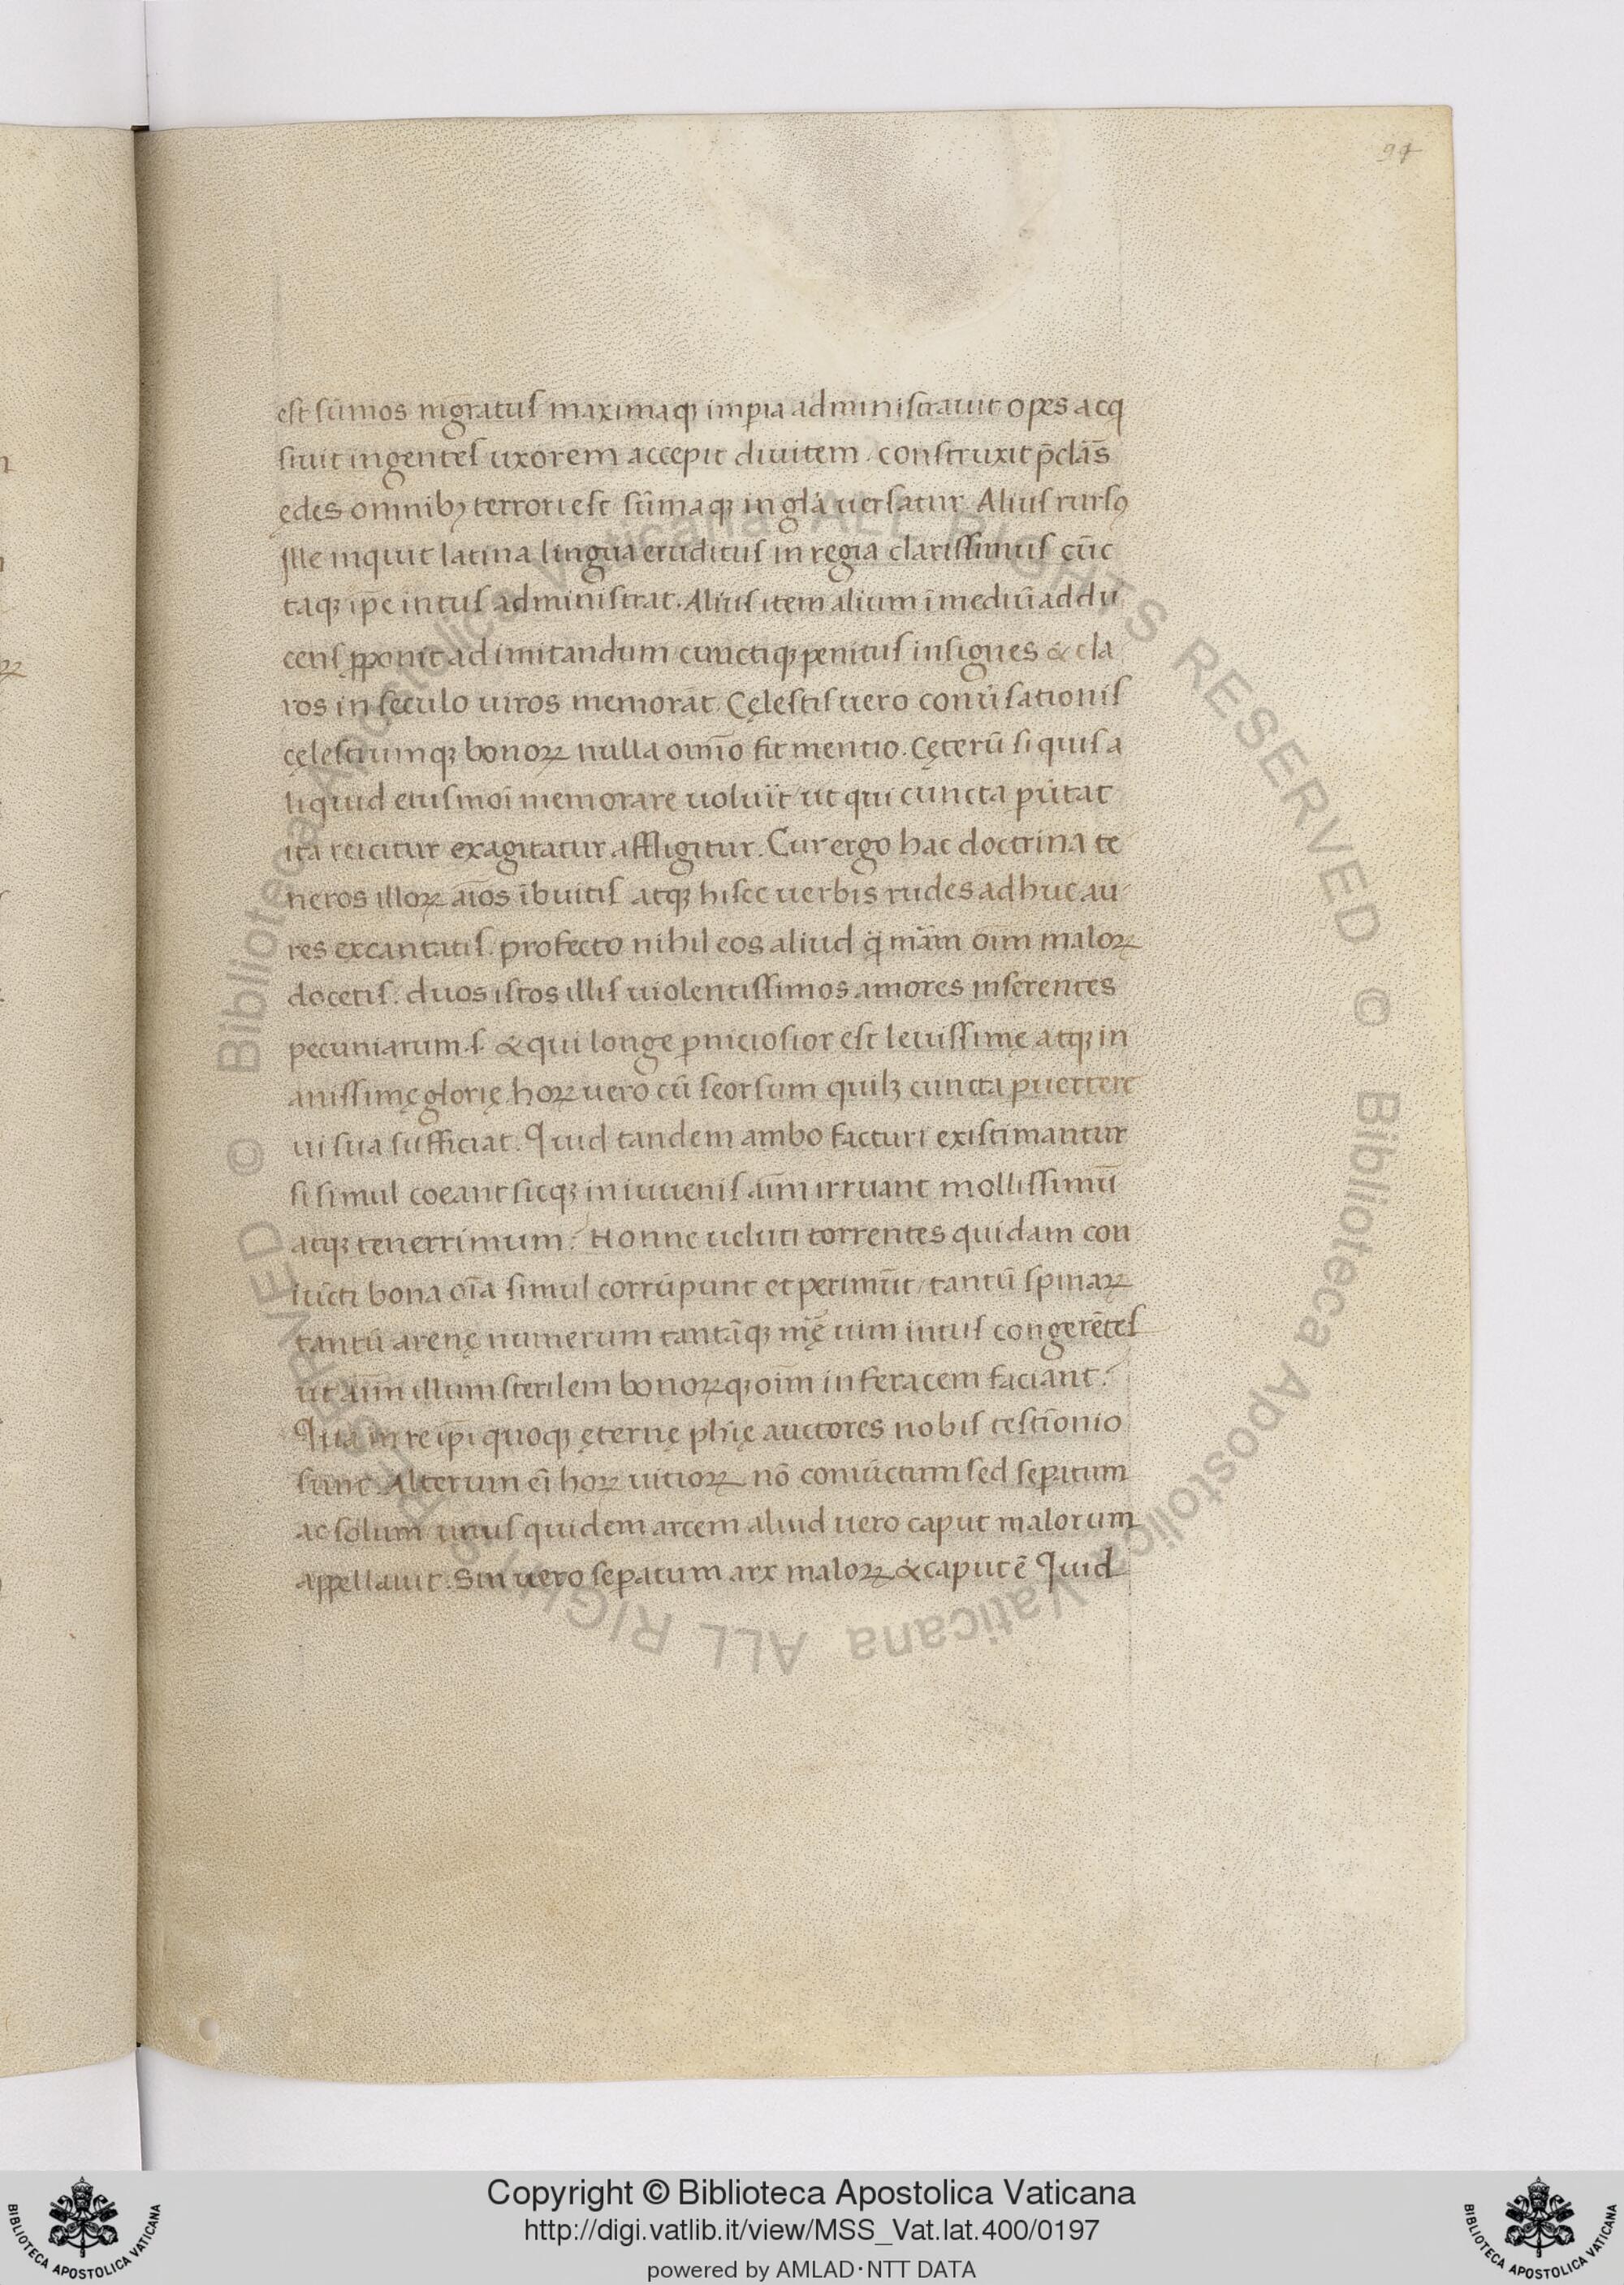 94
est sūmos mgratus maximaqꝫ impia administrauit opes acq
siuit ingentes uxorem accepit diuitem. construxit p̄clās
edes omnibꝫ terrori est sūmaqꝫ in gl̄a uersatur. Alius rursꝰ
Ille inquit latina lingua eruditus in regia clarissimus cūc
taqꝫ ip̄e intus administrat. Alius item alium ī mediū addu
cens ꝓponit ad imitandum cunctiqꝫ penitus insignes & cla
ros in seculo uiros memorat. Cęlestis uero conūsationis
cęlestiumqꝫ bonoꝝ nulla oīno fit mentio. Cęterū si quis a
liquid eiusmōi memorare uoluit ut qui cuncta ꝑūtat
ita reicitur exagitatur affligitur. Cur ergo hac doctrina te
neros illoꝝ aīos ībuitis atqꝫ hisce uerbis rudes adhuc au
res excantatis. profecto nihil eos aliud q̄ mām oīm maloꝝ
docetis. duos istos illis uiolentissimos amores inserentes
pecuniarum .s. & qui longe ꝑniciosior est leuissimę atqꝫ in
anissimę glorię. hoꝝ uero cū seorsum quilꝫ cuncta ꝑuertere
ui sua sufficiat. Quid tandem ambo facturi existimantur
si simul coeant sicqꝫ in iuuenis aīm irruant mollissimū
atqꝫ tenerrimum? Nonne ueluti torrentes quidam con
iūcti bona oīa simul corrūpunt et perimūt / tantū spinaꝝ
tantū arenę numerum tantāqꝫ m̄ę uim intus congerētes
ut aīm illum sterilem bonoꝝqꝫ oīm inferacem faciant?
Qua in re ip̄i quoqꝫ ęternę ph̄ię auctores nobis testīonio
sunt. Alterum eī hoꝝ uitioꝝ nō coniūctum sed seꝑatum
ac solum unus quidem arcem aliud uero caput malorum
appellauit. Sin uero seꝑatum arx maloꝝ & caput ē Quid
© Biblioteca Apostolica Vaticana ALL RIGHTS RESERVED © Biblioteca Apostolica Vaticana ALL RIGHTS RESERVED
Copyright © Biblioteca Apostolica Vaticana
http://digi.vatlib.it/view/MSS_Vat.lat.400/0197
powered by AMLAD·NTT DATA
BIBLIOTECA APOSTOLICA VATICANA
BIBLIOTECA APOSTOLICA VATICANA